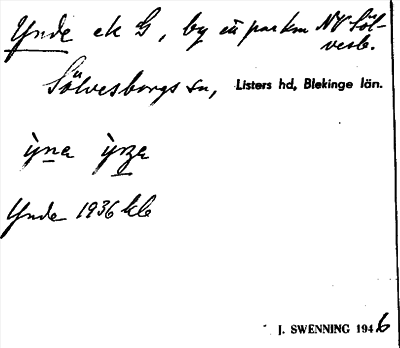 Ynde ek G, by i parkm NV Söl-
vesb.
Sölvesborgs sn, Listers hd, Blekinge län.
Ynde 1936 kb
J. SWENNING 1946